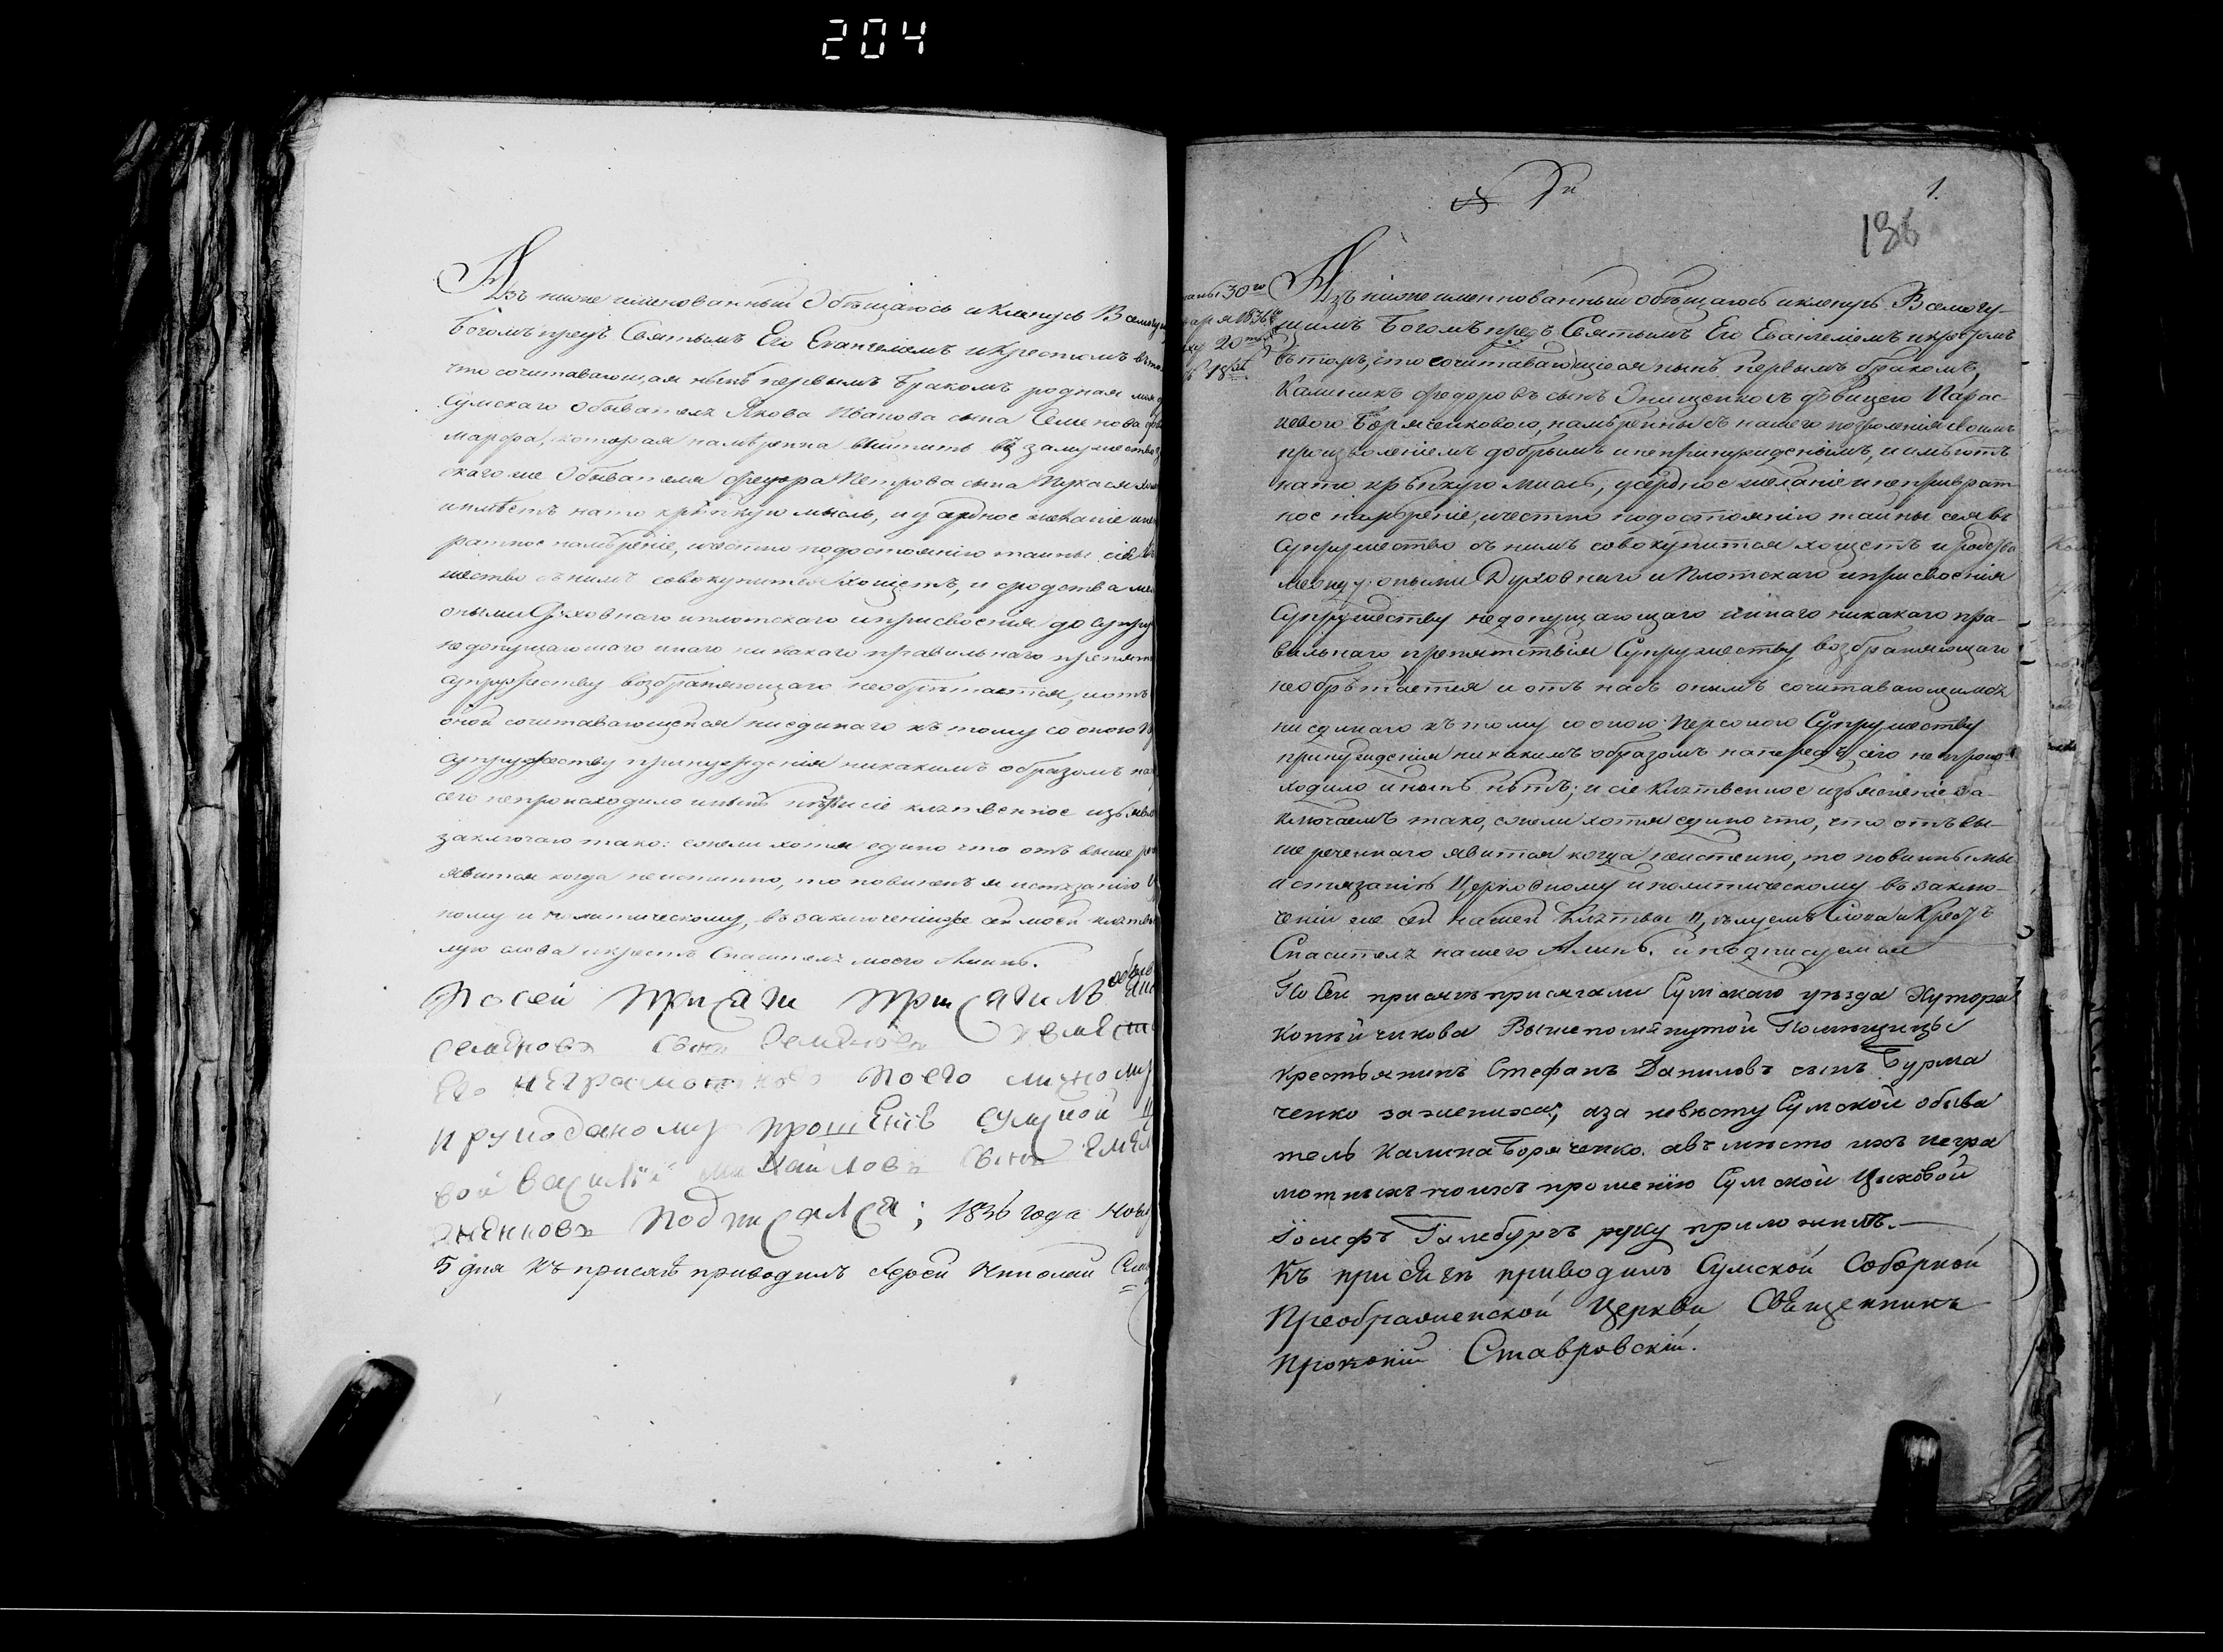 204
Азъ ниже именованный Обѣщаюсь и Кленусь Всемогу
Богомъ предъ Святымъ Его Евангелиемъ и крестомъ въ то
что сочитавающаяся нынѣ первымъ бракомъ родная моя
Сумскаго Обывателя Якова Иванова сына Семенова
Марфа, которая намѣренна вытить въ замужество
скаго же Обывателя Федора Петрова сына
имѣетъ на то крѣпкую мысль, и усердное желание и
ратное намѣрение, честно по достоянию тайны сея
жество с нимъ совокупится хощетъ, и сродства ме
оными Духовнаго и плотскаго и присвоения до супру
недопущающаго инаго никакаго правильнаго препят
супружеству возбраняющаго необрѣтается, и отъ
оной сочитавающейся ни единаго къ тому со оною
супружеству принуждения никакимъ образомъ на
сего непроисходило и нынѣ и сие клятвенное изъ
заключаю тако: ежели хотя едино что отъ выше
явится когда неистинно, то повиненъ я истязанию
ному и политическому, въ заключении же сей моей клятвы
лую слова и крестъ Спасителя моего Аминь.
По сей присяги присягилъ
Семеновъ сынъ
Его неграмотного по его личному
и руподаному прошению Сумской
вой Василий Михайловъ сынъ
подписался; 1836 года
5 дня Къ присягѣ приводилъ Иерей Николай
1.
136
30го
1836
20
18
Азъ ниже имепнованный обѣщаюсь и кленусь Всемогу-
щимъ Богомъ предъ Святымъ Его Евангелиемъ и крестомъ
въ томъ, что сочитавающиеся нынѣ первымъ бракомъ,
Калиникъ Федоровъ сынъ Онищенко съ дѣвицею Парас-
кевою Боряченковою, намѣренны съ нашего позволения своимъ
произволениемъ добрымъ и непринужденнымъ, и имѣютъ
на то крѣпкую мысль, усердное желание и непреврат
ное намѣрение, честно по достоянию тайны сея въ
супружество съ нимъ совокупится хощетъ и сродства
между оными Духовнаго и Плотскаго и присвоения
Супружеству недопущающаго иннаго никакаго пра-
вильнаго препятствия Супружеству возбраняющаго
необрѣтается и отъ насъ онымъ сочитавающимся
ни единаго къ тому со оною Персоною Супружеству
принуждения никакимъ образомъ напередъ сего не проис-
ходило и нынѣ нѣтъ; и сие Клятвенное изъяснение за-
ключаемъ тако, ежели хотя едино что, что отъ вы-
ше реченнаго явится когда неистенно, то повинны мы
истязанию Церковному и политическому въ заклю-
чении же сей нашей клятвы Цѣлуемъ Слова и Крестъ
Спасителя нашего Аминь. и подписуемся
По Сей присягѣ присягали Сумскаго уѣзда Хутора
Вышепомянутой Помѣщицы
Крестьянинъ Стефанъ Даниловъ сынъ Бурма
ченко за жениха; а за невѣсту Сумской обыва
тель Калина Боряченко. а въ мѣсто ихъ негра
мотныхъ по ихъ прошению Сумской Цеховой
Иосифъ руку приложилъ.
Къ присягѣ приводилъ Сумской Соборной
Преображенской Церкви Священникъ
Прокопий Ставровский.